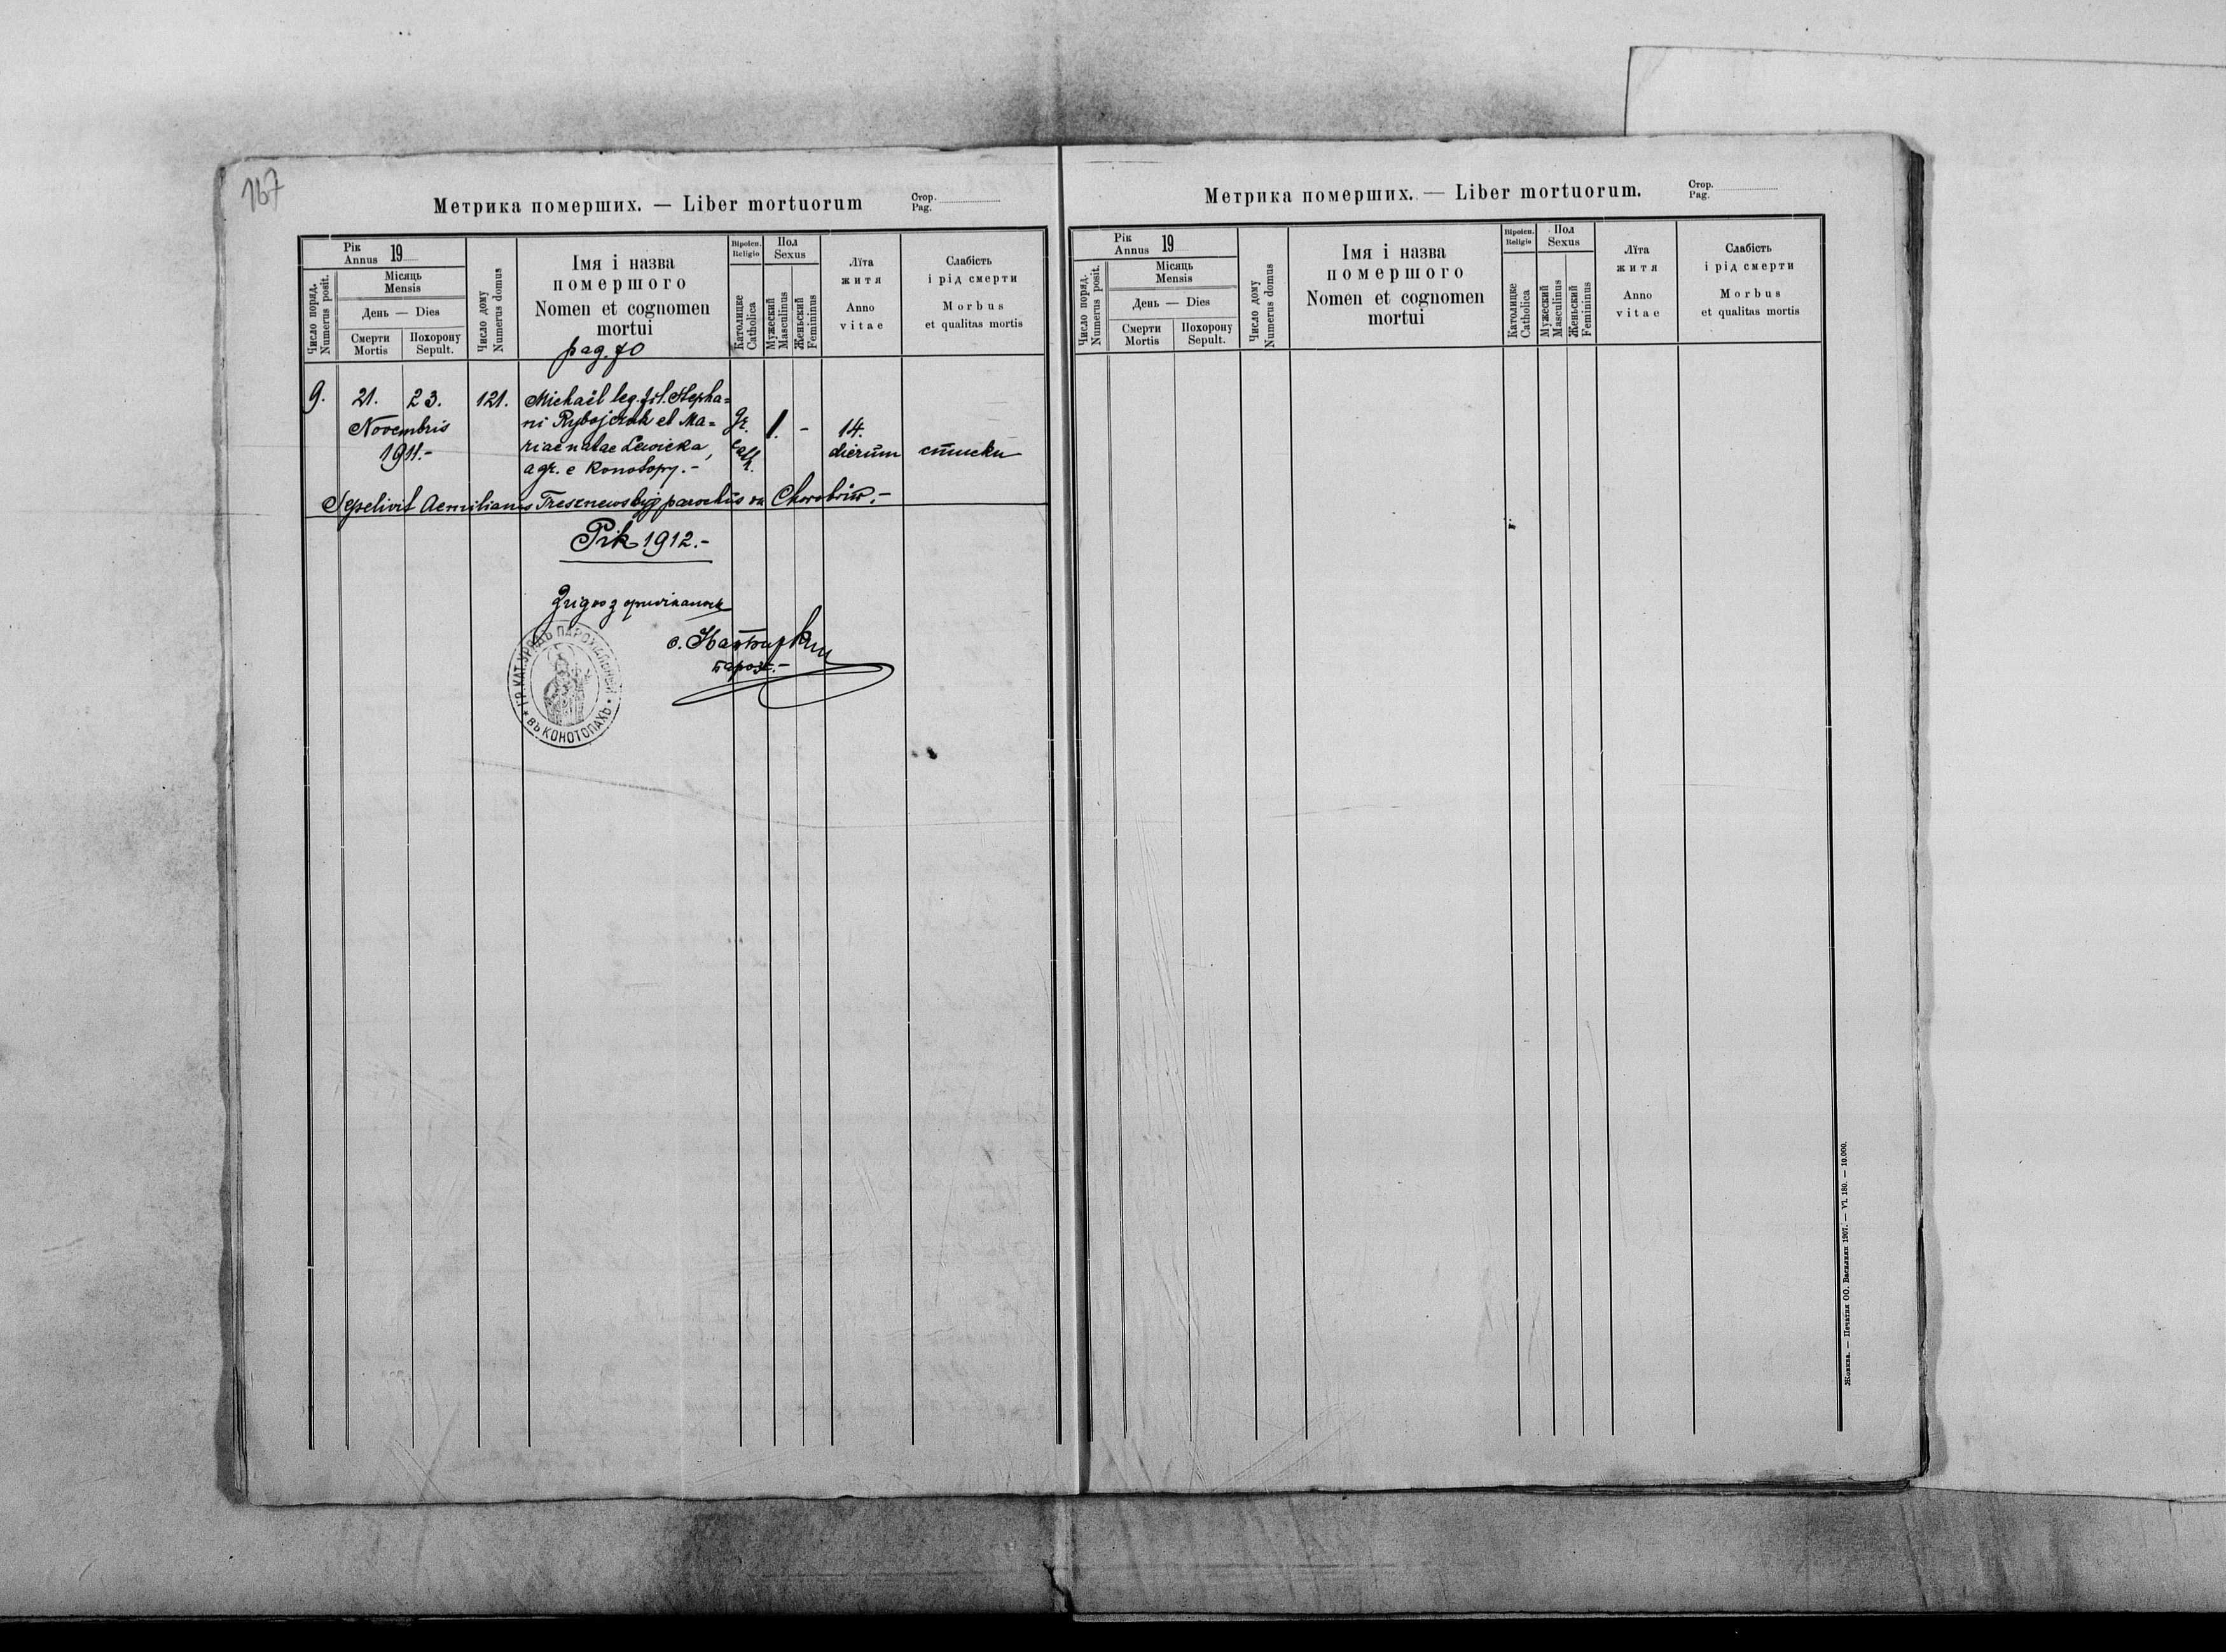 167
Метрика померших. — Liber mortuorum
Стор.
Pag.
Рік
Annus 19
Місяць
Mensis
День — Dies
Число поряд.
Numerus posit.
Смерти
Mortis
Похорону
Sepult.
Число дому
Numerus domus
Імя і назва
помершого
Nomen et cognomen
mortui
Віроісп.
Religio
Католицке
Catholica
Пол
Sexus
Мужеский
Masculinus
Женьский
Femininus
Лїта
житя
Anno
vitae
Слабість
і рід смерти
Morbus
et qualitas mortis
pag. 70
9. 21. 23. 121. Michaël leg. fil. Stepha=
Novembris ni Rybojczuk et Ma= gr. 1. - 14.
1911.- riae natae Lewicka, cath. dierum
agr. e Konotopy.-
Sepelivit Aemilianus parochus Chorobrów.-
Рік 1912.-
пароx.-
ГР.КАТ.УРЯДЪ ПАРОХІАЛЬНЫЙ
ВЪ КОНОТОПАХЪ
Метрика померших. — Liber mortuorum.
Стор.
Pag.
Рік
Annus 19
Місяць
Mensis
День — Dies
Число поряд.
Numerus posit.
Смерти
Mortis
Похорону
Sepult.
Число дому
Numerus domus
Імя і назва
помершого
Nomen et cognomen
mortui
Віроісп.
Religio
Католицке
Catholica
Пол
Sexus
Мужеский
Masculinus
Женьский
Femininus
Лїта
житя
Anno
vitae
Слабість
і рід смерти
Morbus
et qualitas mortis
Жовква. — Печатня ОО. Василиян 1907. — VI. 180. — 10.000.